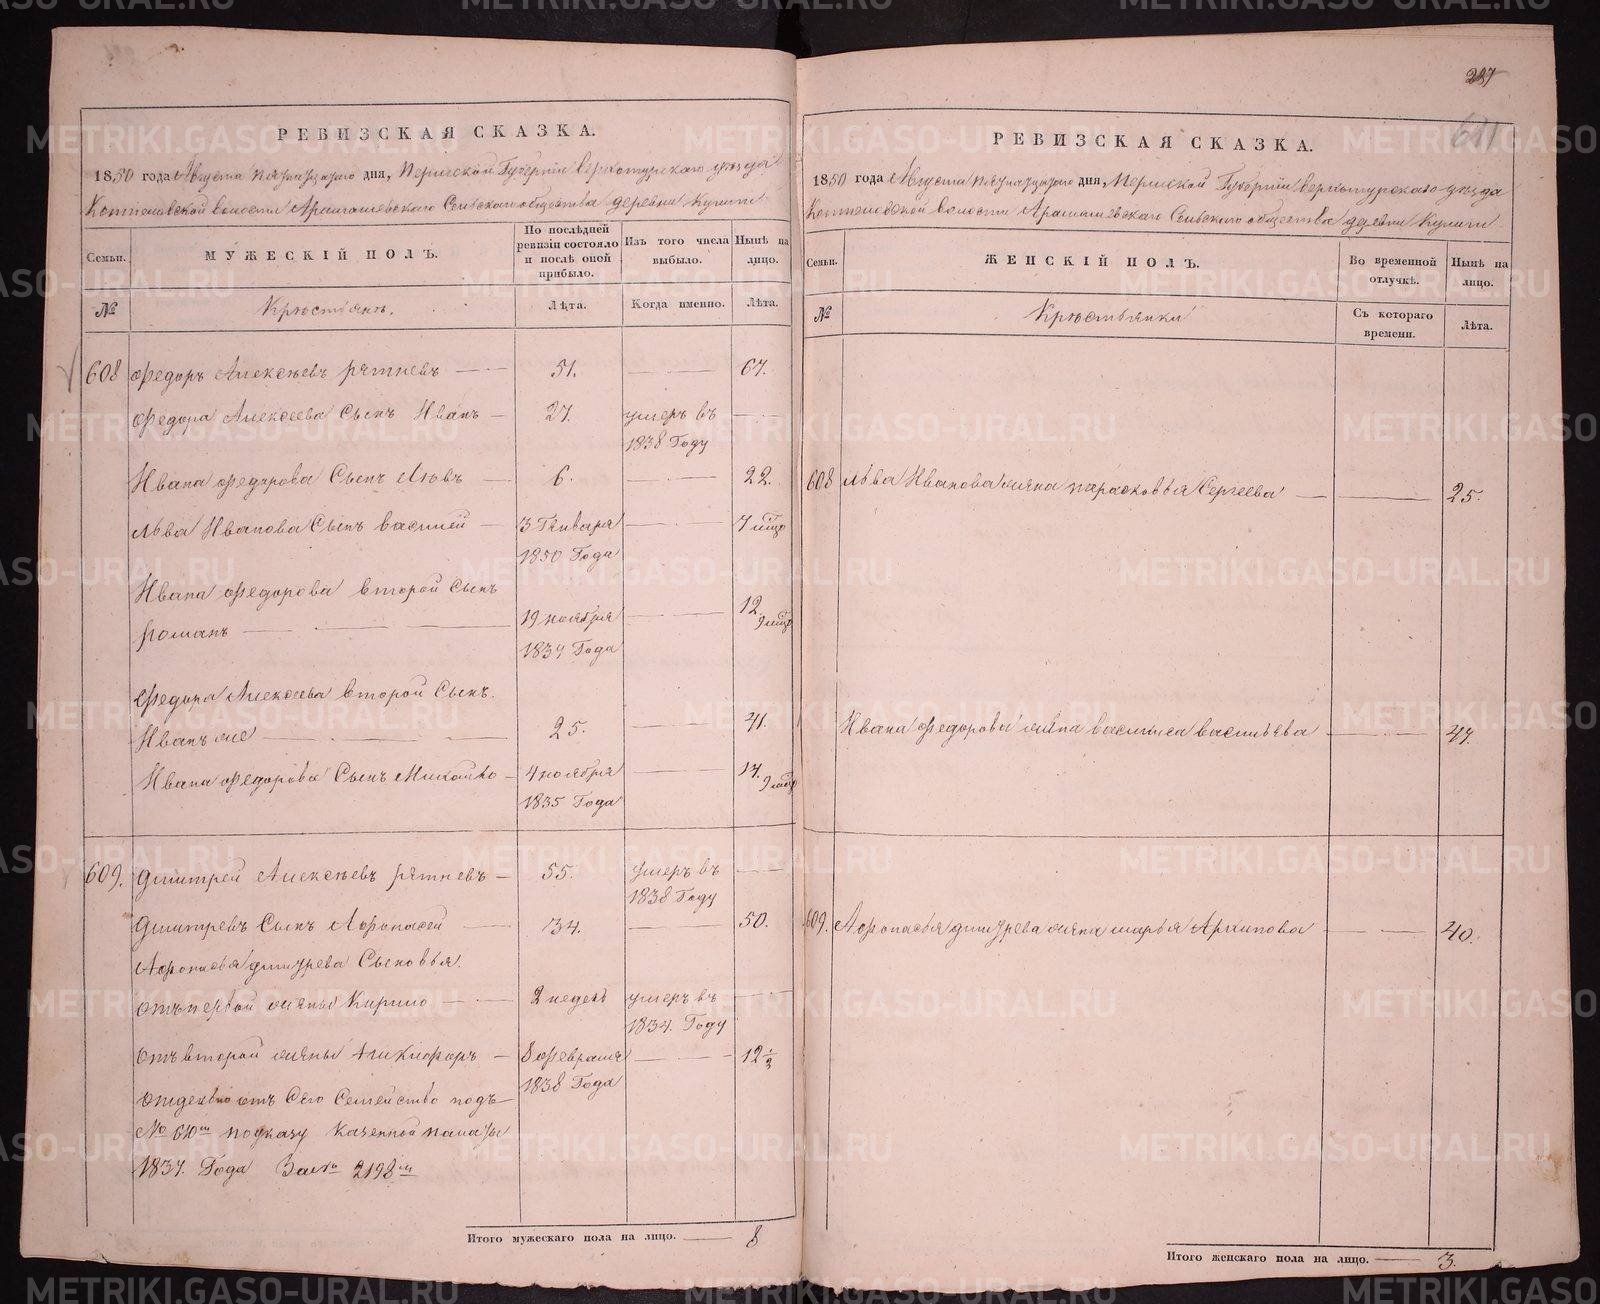 РЕВИЗСКАЯ СКАЗКА.
1850 года Августа пятнадцатаго дня, Пермской Губернiи верхотурскаго уѣзда
волости Арамашевскаго Сельскаго общества деревни Кулиги
Семьи.
МУЖЕСКIЙ ПОЛЪ.
По послѣдней ревизiи состояло и послѣ оной прибыло.
Изъ того числа выбыло.
Нынѣ на лицо.
№
Крестьянъ.
Лѣта.
Когда именно.
Лѣта.
608 Федоръ Алексѣевъ рятневъ 51. 67.
Федора Алексеева Сынъ Иванъ 27. умеръ въ
1838 Году
Ивана Федорова Сынъ Львъ 6. 22.
Льва Иванова Сынъ василей 3 Генваря 7 мѣц
1850 Года
Ивана Федорова второй Сынъ
романъ 19 ноября 12. 9 мѣц
1837 Года
Федора Алексеева второй Сынъ.
Иванъ же 25. 41.
Ивана Федорова Сынъ Михайло 4 ноября 14. 9 мѣц
1835 Года
609. Дмитрей Алексѣевъ рятневъ 55. умеръ въ
1838 Году
Дмитревъ Сынъ Афонасей 34. 50.
Афонасья Дмитрева Сыновья.
отъ первой жены Кирило 2 недель умеръ въ
1834. Году
отъ второй жены Никифоръ 8 февраля 12 ½
1838 Года
отделено отъ Сего Семейство подъ
№ 610м по указу Казенной палаты
1837. Года За № 2198м
Итого мужескаго пола на лицо. 8
287
621
РЕВИЗСКАЯ СКАЗКА.
1850 года Августа пятнадцатаго дня, Пермской Губернiи верхотурскаго уѣзда
волости Арамашевскаго Сельскаго общества деревни Кулиги
Семьи.
ЖЕНСКIЙ ПОЛЪ.
Во временной отлучкѣ.
Нынѣ на лицо.
№
Крестьянки
Съ котораго времени.
Лѣта.
608 Льва Иванова жена парасковья Сергеева 25.
Ивана Федорова жена василиса васильева 44.
609. Афонасья Дмитрева жена марья Архипова 40.
Итого женскаго пола на лицо. 3.
METRIKI.GASO-URAL.RU